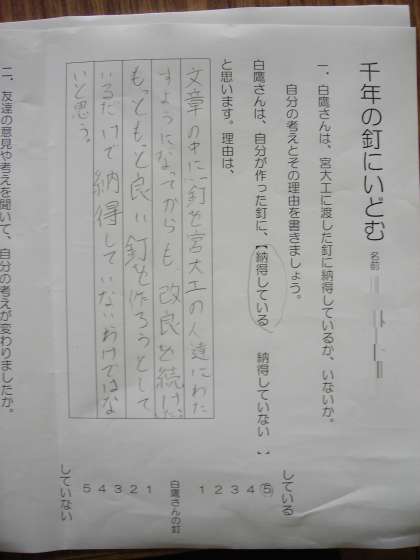 千年の釘にいどむ
名前
一、白鷹さんは、宮大工に渡した釘に納得しているか、いないか。
自分の考えとその理由を書きましょう。
白鷹さんは、自分が作った釘に、【納得している　納得していない】
と思います。理由は、
文章の中に「釘を宮大工の人達にわた
すようになってからも、改良を続け、
もっともっと良い釘を作ろうとして
いるだけで納得していないわけではな
いと思う。
している
5 4 3 2 1
白鷹さんの釘
1 2 3 4 5
していない
二、友達の意見や考えを聞いて、自分の考えが変わりましたか。